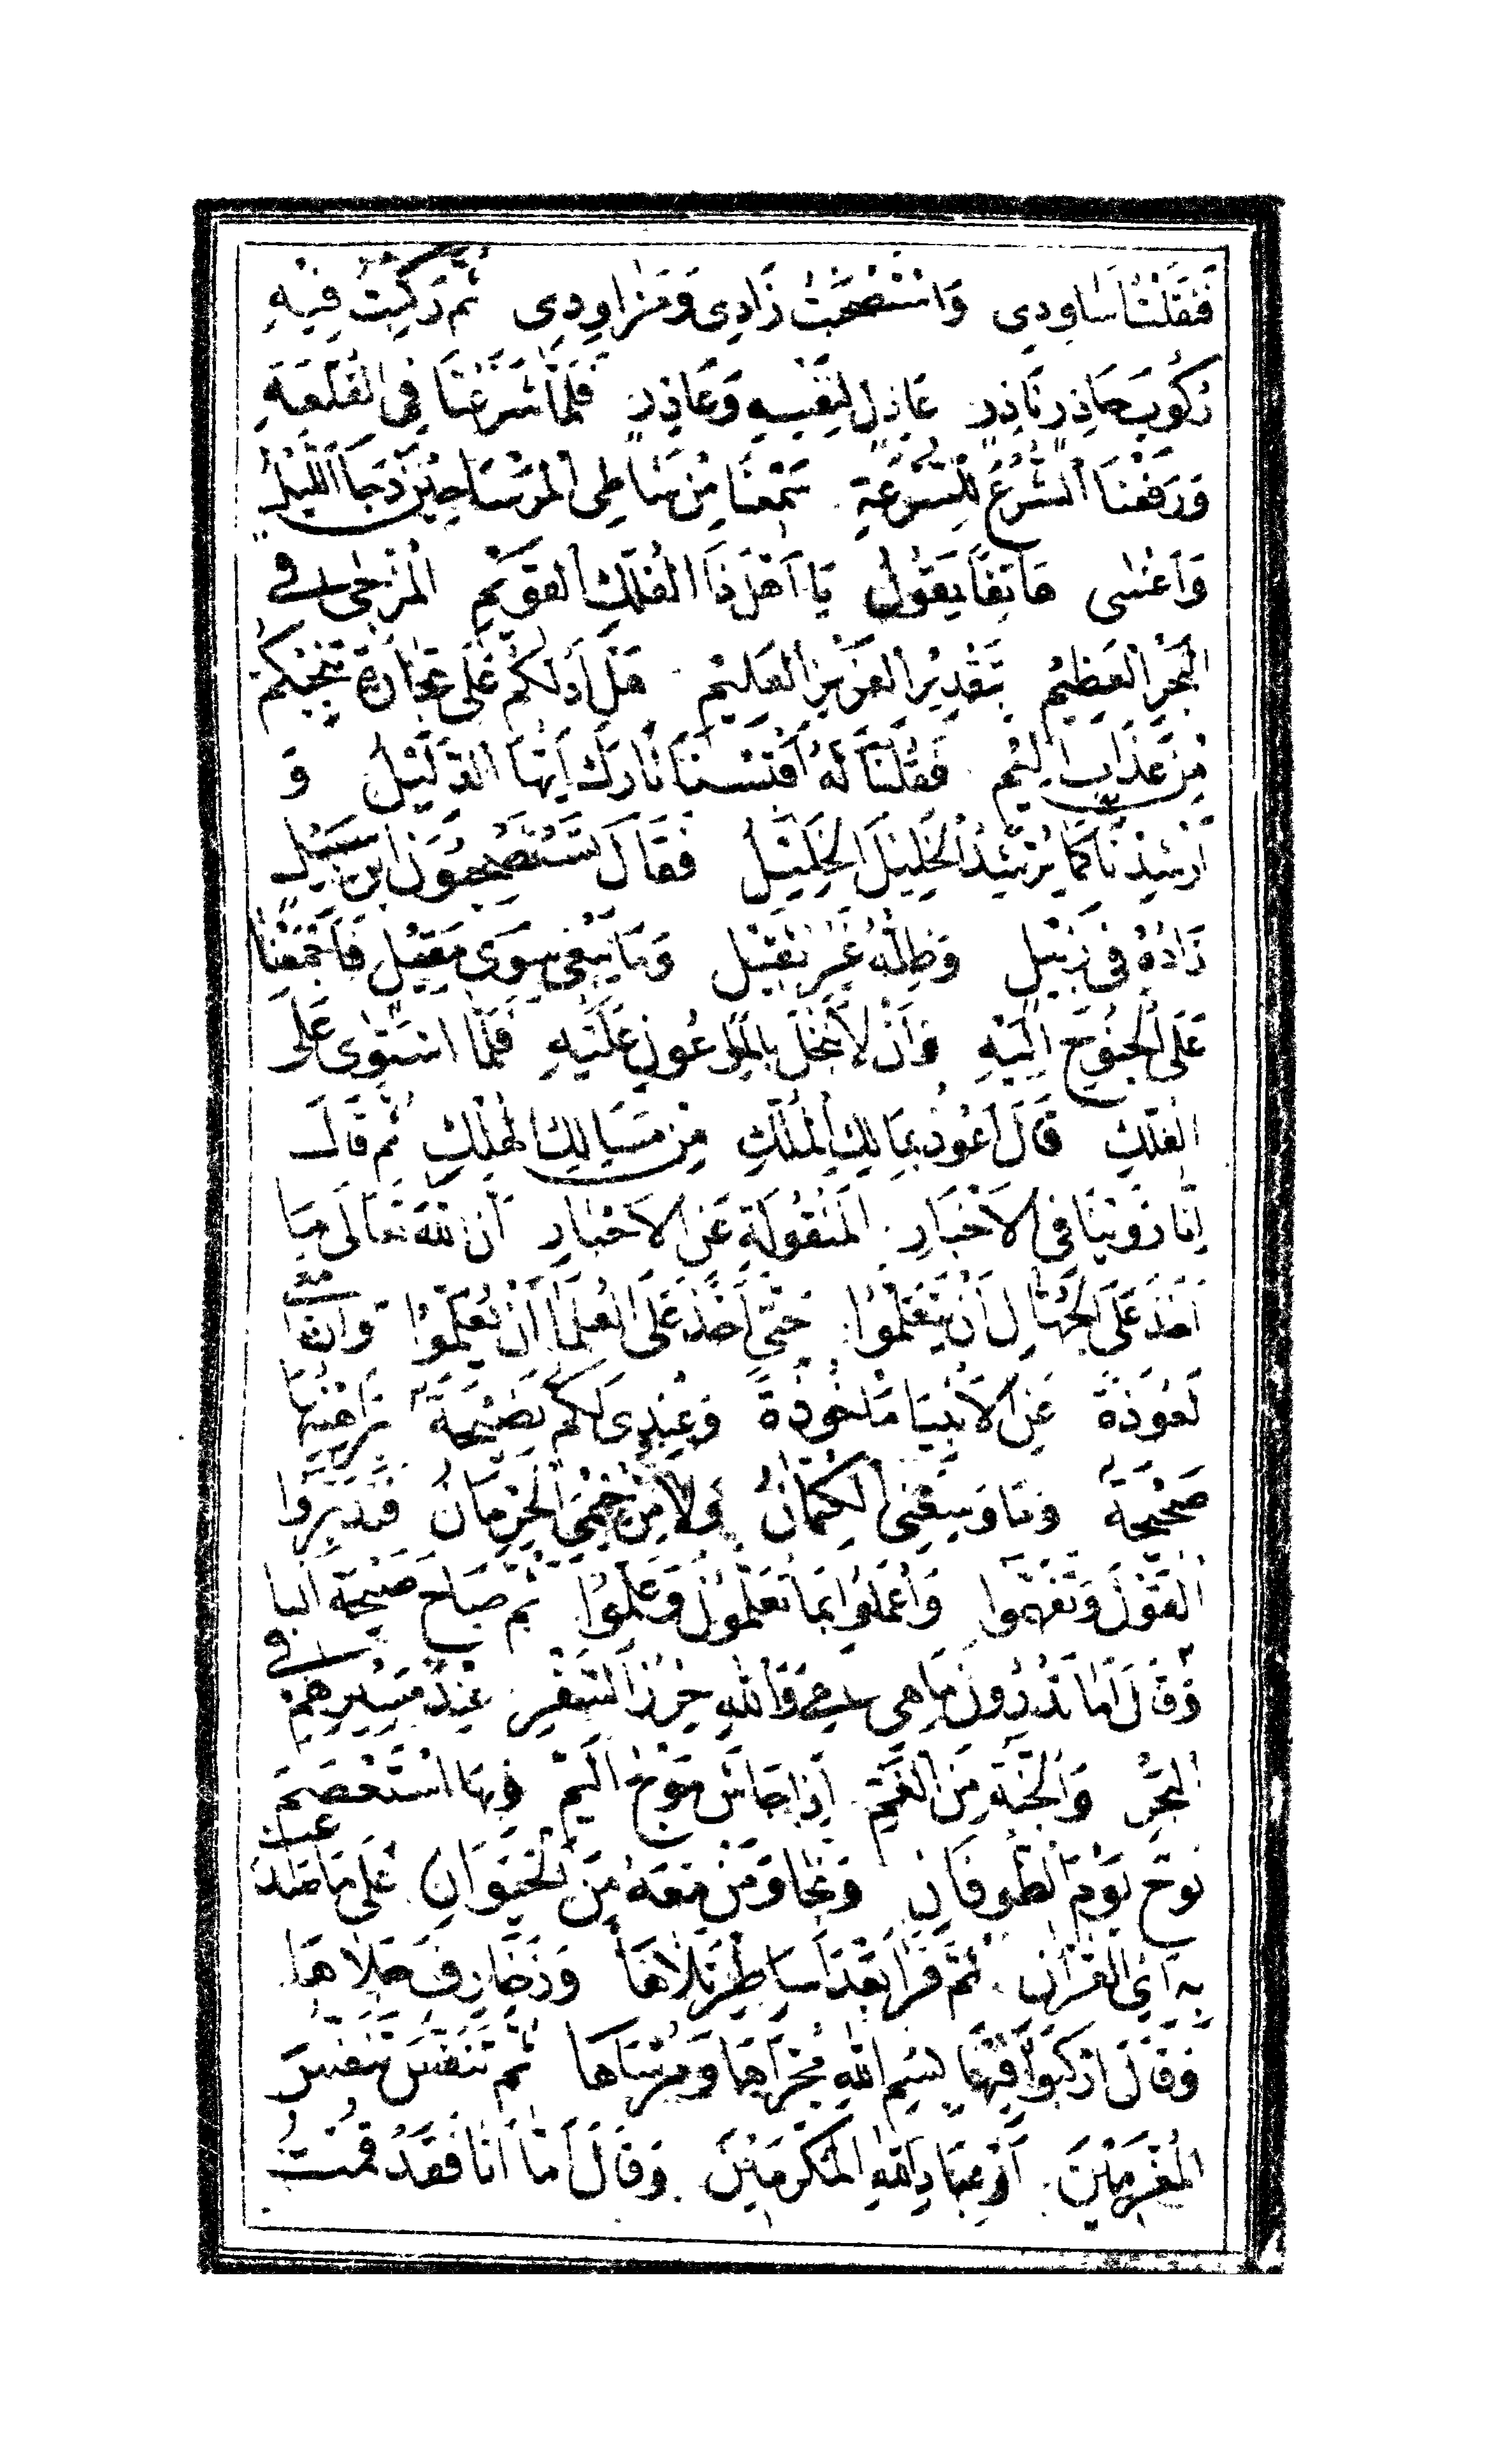 فَنَقَلْتُ اَسَاوِدِى وَاسْتَصْحَبْتُ زَادِى وَمَزَاوِدِى ثُمَّ رَكِبْتُ فِيْهِ
رُكُوْبَ حَاذِرٍ نَاذِرٍ عَاذِلٍ لِنَفْسِهِ وَعَاذِرٍ فَلَمَّا شَرَعْنَا فِى القُلْعَةِ
وَرَفَعْنَا الشُّرُعَ لِلسُّرْعَةِ سَمِعْنَا مِنْ شَاطِئِ المَرْسَا حِيْنَ دَجَا اللَّيْلُ
وَاَغْسٰى هَاتِفًا يَقُوْلُ يَا اَهْلَ ذَا الفُلْكِ القَوِيْمِ المُزْجٰى فى
البَحْرِ العَظِيْمِ بِتَقْدِيْرِ العَزِيْزِ العَلِيْمِ هَلْ اَدُلُّكُمْ عَلَى تِجَارَةٍ تُنْجِيْكُمْ
مِنْ عَذَابٍ اَلِيْمٍ فَقُلْنَا لَهُ اَقْبِسْنَا نَارَكَ اَيُّهَا الدَّلِيْلُ وَ
اَرْشِدْنَا كَمَا يُرْشِدُ الخَلِيْلُ الخَلِيْلَ فَقَالَ تَسْتَصْحِبُوْنَ ابْنَ سَبِيْلٍ
زَادُهُ فِى زَبِيْلٍ وَظِلُّهُ غَيْرُ ثَقِيْلٍ وَمَا يَبْغِى سِوَى مَقِيْلٍ فَاَجْمَعْنَا
عَلَى الجُنُوْحِ اِلَيْهِ وَاَنْ لَا نَبْخَلَ بِالمَاعُوْنِ عَلَيْهِ فَلَمَّا اسْتَوٰى عَلَى
الفُلْكِ قَالَ اَعُوْذُ بِمَالِكِ المُلْكِ مِنْ مَسَالِكِ الهُلْكِ ثُمَّ قَالَ
اِنَّا رُوِيْنَا فِى الاَخْبَارِ المَنْقُوْلَةِ عَنِ الاَحْبَارِ اَنَّ اللهَ تَعَالَى مَا
اَخَذَ عَلَى الجُهَّالِ اَنْ يَتَعَلَّمُوْا حَتّٰى اَخَذَ عَلَى العُلَمَا اَنْ يُعَلِّمُوْا وَاِنَّ مَعِى
لَعُوْذَةً عَنِ الاَنْبِيَا مَاْخُوْذَةً وَعِنْدِى لَكُمْ نَصِيْحَةٌ بَرَاهِيْنُهَا
صَحِيْحَةٌ وَمَا وَسِعَنِى الكِتْمَانُ وَلَا مِنْ خِيْمِىَ الحِرْمَانُ فَتَدَبَّرُوْا
القَوْلَ وَتَفَهَّمُوا وَاعْمَلُوْا بِمَا تُعَلَّمُوْنَ وَعَلِّمُوْا ثُمَّ صَاحَ صَيْحَةَ المُبَا
هِى وَقَالَ اَمَا تَدْرُوْنَ مَا هِى هِىَ وَاللهِ حِرْزُ السَّفْرِ عِنْدَ مَسِيْرِهِمْ فى
البَحْرِ وَالجُنَّةُ مِنَ الغَمِّ اِذَا جَاشَ مَوْجُ اليَمِّ وَبِهَا اسْتَعْصَمَ
نُوْحٌ يَوْمَ الطُّوفَانِ وَنَجَا وَمَنْ مَعَهُ مِنَ الحَيَوَانِ عَلَى مَا صَدَعَتْ
بِهِ آىُ القُرْآنِ ثُمَّ قَرَا بَعْدَ اَسَاطِيْرَ تَلَاهَا وَزَخَارِفَ جَلَاهَا
وَقَالَ ارْكَبُوْا فِيْهَا بِسْمِ اللهِ مَجْرَاهَا وَمُرْسَاهَا ثُمَّ تَنَفَّسَ تَنَفُّسَ
المُغْرَمِيْنَ اَوْ عِبَادِ اللهِ المُكْرَمِيْنَ وَقَالَ اَمَّا اَنَا فَقَدْ قُمْتُ